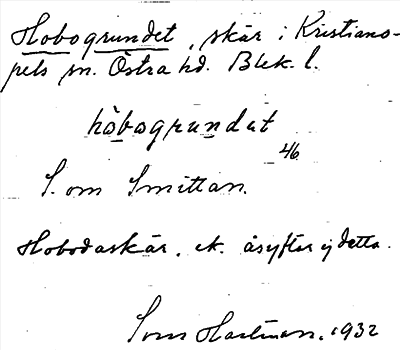 Hobogrundet, skär i Kristiano-
pels sn. Östra hd. Blek. l.
hòbogrundut
46
S. om Smittan.
Hobodaskär. ek. åsyftar ej detta.
Sven Hartman. 1932